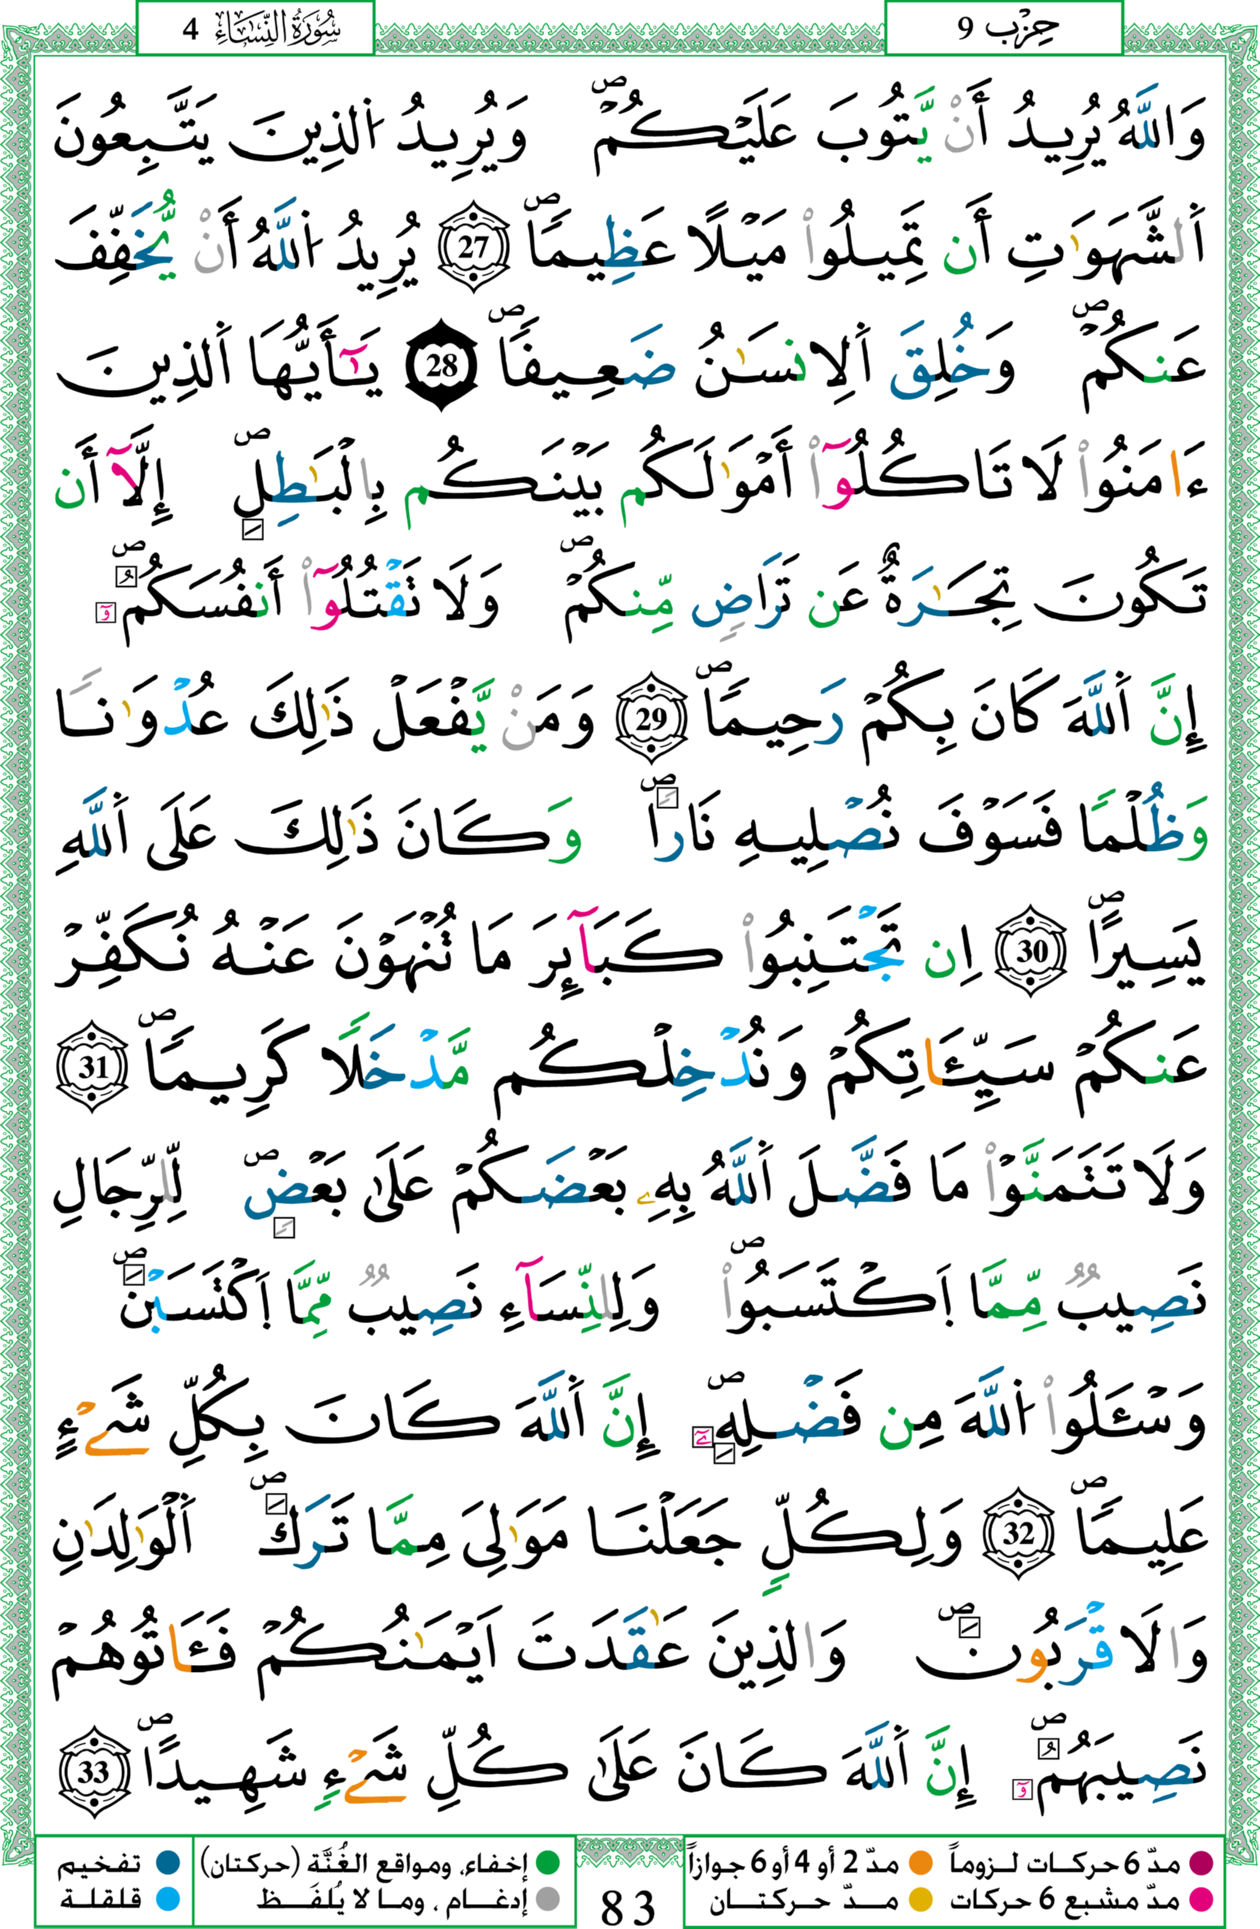 حِزْب 9
سُورَةُ النِّسَاءِ 4
وَاللَّهُ يُرِيدُ أَنْ يَّتُوبَ عَلَيْكُمْۖ وَيُرِيدُ اُ۬لذِينَ يَتَّبِعُونَ
اَ۬لشَّهَوَٰتِ أَن تَمِيلُواْ مَيْلًا عَظِيمًاۖ 27 يُرِيدُ اُ۬للَّهُ أَنْ يُّخَفِّفَ
عَنكُمْۖ وَخُلِقَ اَ۬لِانسَٰنُ ضَعِيفًاۖ 28 يَٰٓأَيُّهَا اَ۬لذِينَ
ءَامَنُواْ لَا تَاكُلُوٓاْ أَمْوَٰلَكُم بَيْنَكُم بِالْبَٰطِلِۖ إِلَّآ أَن
تَكُونَ تِجَٰرَةٌ عَن تَرَاضٍ مِّنكُمْۖ وَلَا تَقْتُلُوٓاْ أَنفُسَكُمُۥٓۖ
إِنَّ اَ۬للَّهَ كَانَ بِكُمْ رَحِيمًاۖ 29 وَمَنْ يَّفْعَلْ ذَٰلِكَ عُدْوَٰنًا
وَظُلْمًا فَسَوْفَ نُصْلِيهِ نَارًاۖ وَكَانَ ذَٰلِكَ عَلَى اَ۬للَّهِ
يَسِيرًاۖ 30 اِن تَجْتَنِبُواْ كَبَآئِرَ مَا تُنْهَوْنَ عَنْهُ نُكَفِّرْ
عَنكُمْ سَيِّـَٔاتِكُمْ وَنُدْخِلْكُم مَّدْخَلًا كَرِيمًاۖ 31
وَلَا تَتَمَنَّوْاْ مَا فَضَّلَ اَ۬للَّهُ بِهِۦ بَعْضَكُمْ عَلَىٰ بَعْضٍۖ لِّلرِّجَالِ
نَصِيبٌ مِّمَّا اَ۪كْتَسَبُواْۖ وَلِلنِّسَآءِ نَصِيبٌ مِّمَّا اَ۪كْتَسَبْنَۖ
وَسْـَٔلُواْ اُ۬للَّهَ مِن فَضْلِهِۦٓۖ إِنَّ اَ۬للَّهَ كَانَ بِكُلِّ شَےْءٍ
عَلِيمًاۖ 32 وَلِكُلٍّ جَعَلْنَا مَوَٰلِيَ مِمَّا تَرَكَۖ اَ۬لْوَٰلِدَٰنِ
وَالَاقْرَبُونَۖ وَالذِينَ عَٰقَدَتَ اَيْمَٰنُكُمْ فَـَٔاتُوهُمْ
نَصِيبَهُمُۥٓۖ إِنَّ اَ۬للَّهَ كَانَ عَلَىٰ كُلِّ شَےْءٍ شَهِيدًاۖ 33
مدّ 6 حركات لـزوماً مدّ 2 أو 4 أو 6 جوازاً إخفاء، ومواقع الغُنَّة (حركتان) تفخيم
مدّ مشبع 6 حركات مــدّ حـركتــان إدغـام ، ومـا لا يُلفَـظ قلقلة
83